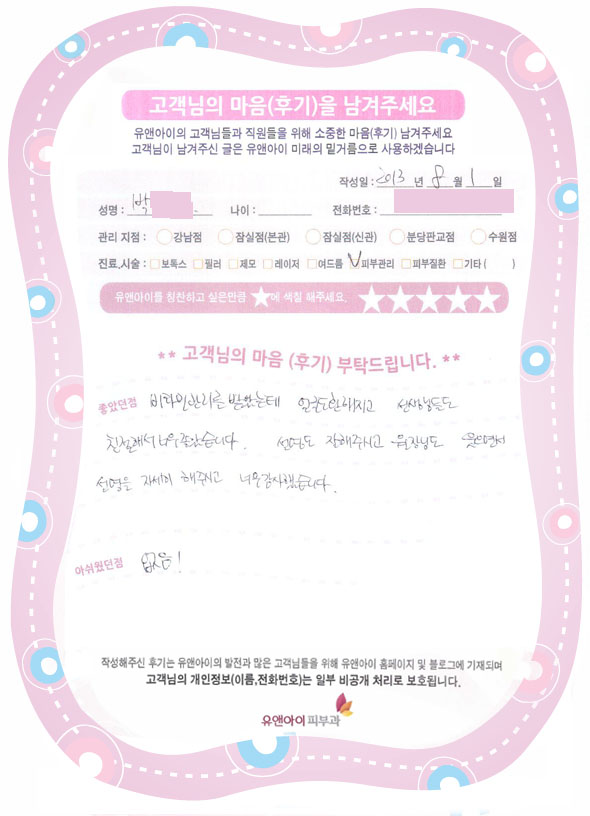 고객님의 마음(후기)을 남겨주세요
유앤아이의 고객님들과 직원들을 위해 소중한 마음(후기) 남겨주세요
고객님이 남겨주신 글은 유앤아이 미래의 밑거름으로 사용하겠습니다
작성일 : 2013 년 8 월 1 일
성명 : 박 나이 : 전화번호 :
관리 지점 : 강남점 잠실점(본관) 잠실점(신관) 분당판교점 수원점
진료,시술 : 보톡스 필러 제모 레이저 여드름 피부관리 피부질환 기타 ( )
유앤아이를 칭찬하고 싶은만큼 ★에 색칠 해주세요. ★★★★★
** 고객님의 마음 (후기) 부탁드립니다. **
좋았던점 비타민관리를 받았는데 얼굴도환해지고 선생님들도
친절해서 너무좋았습니다. 설명도 잘해주시고 원장님도 웃으면서
설명을 자세히 해주시고 너무감사했습니다.
아쉬웠던점 없음!
작성해주신 후기는 유앤아이의 발전과 많은 고객님들을 위해 유앤아이 홈페이지 및 블로그에 기재되며
고객님의 개인정보(이름,전화번호)는 일부 비공개 처리로 보호됩니다.
유앤아이피부과